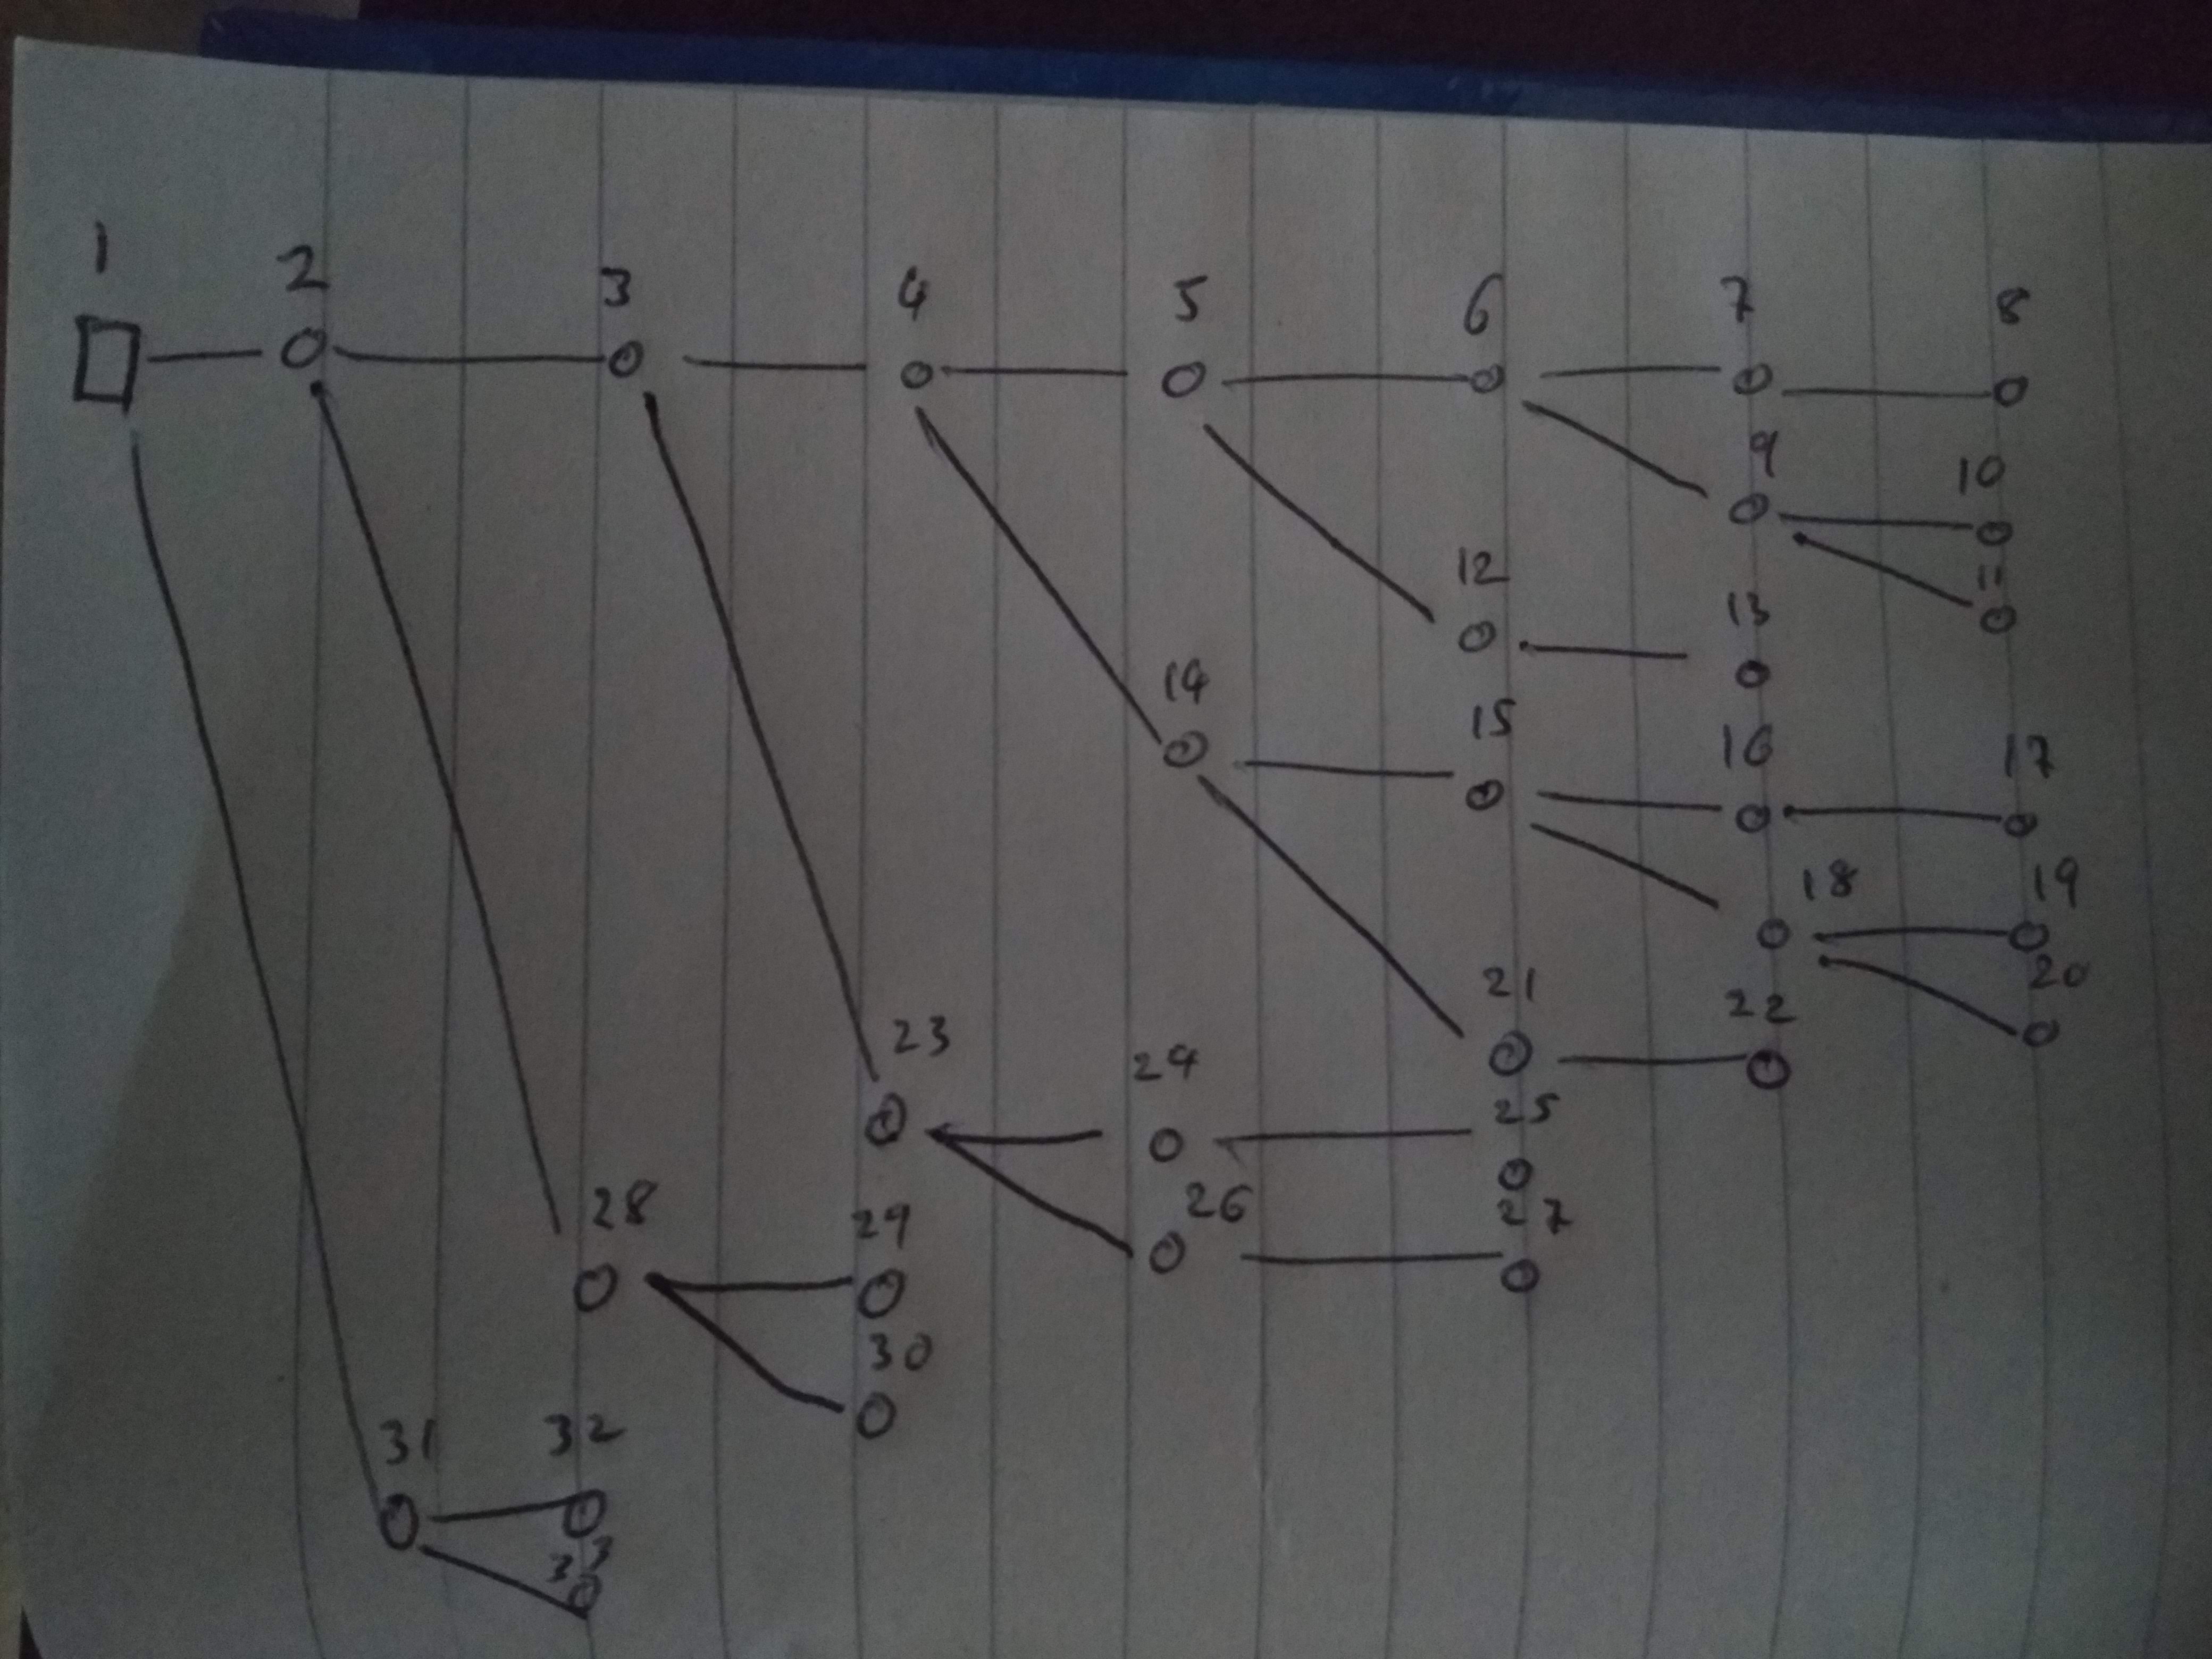 1 2 3 4 5 6 7 8
9 10
11
12 13
14 15 16 17
18 19
20
21 22
23 24 25
26 27
28 29
30
31 32
33